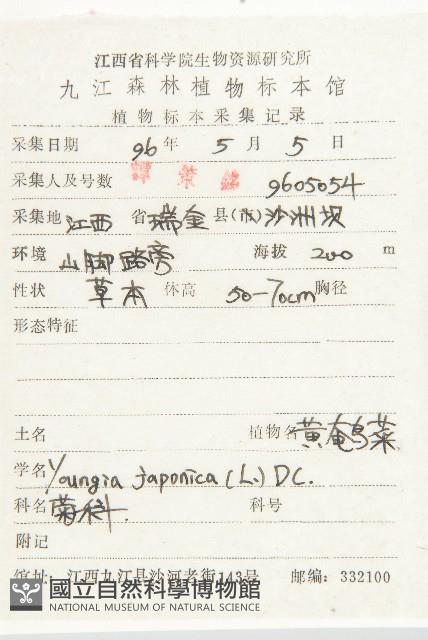 江西省科学院生物资源研究所
九江森林植物标本馆
植物标本采集记录
采集日期 96年 5月 5日
采集人及号数 9605054
采集地 江西 省 瑞金 县(市) 沙洲坝
环境 山脚路旁 海拔 200 m
性状 草本 体高 50-70cm 胸径
形态特征
土名 植物名 黄庵鸟菜
学名 Youngia japonica (L.) DC.
科名 菊科. 科号
附记
馆址: 江西九江县沙河老街143号 邮编: 332100
國立自然科學博物館
NATIONAL MUSEUM OF NATURAL SCIENCE